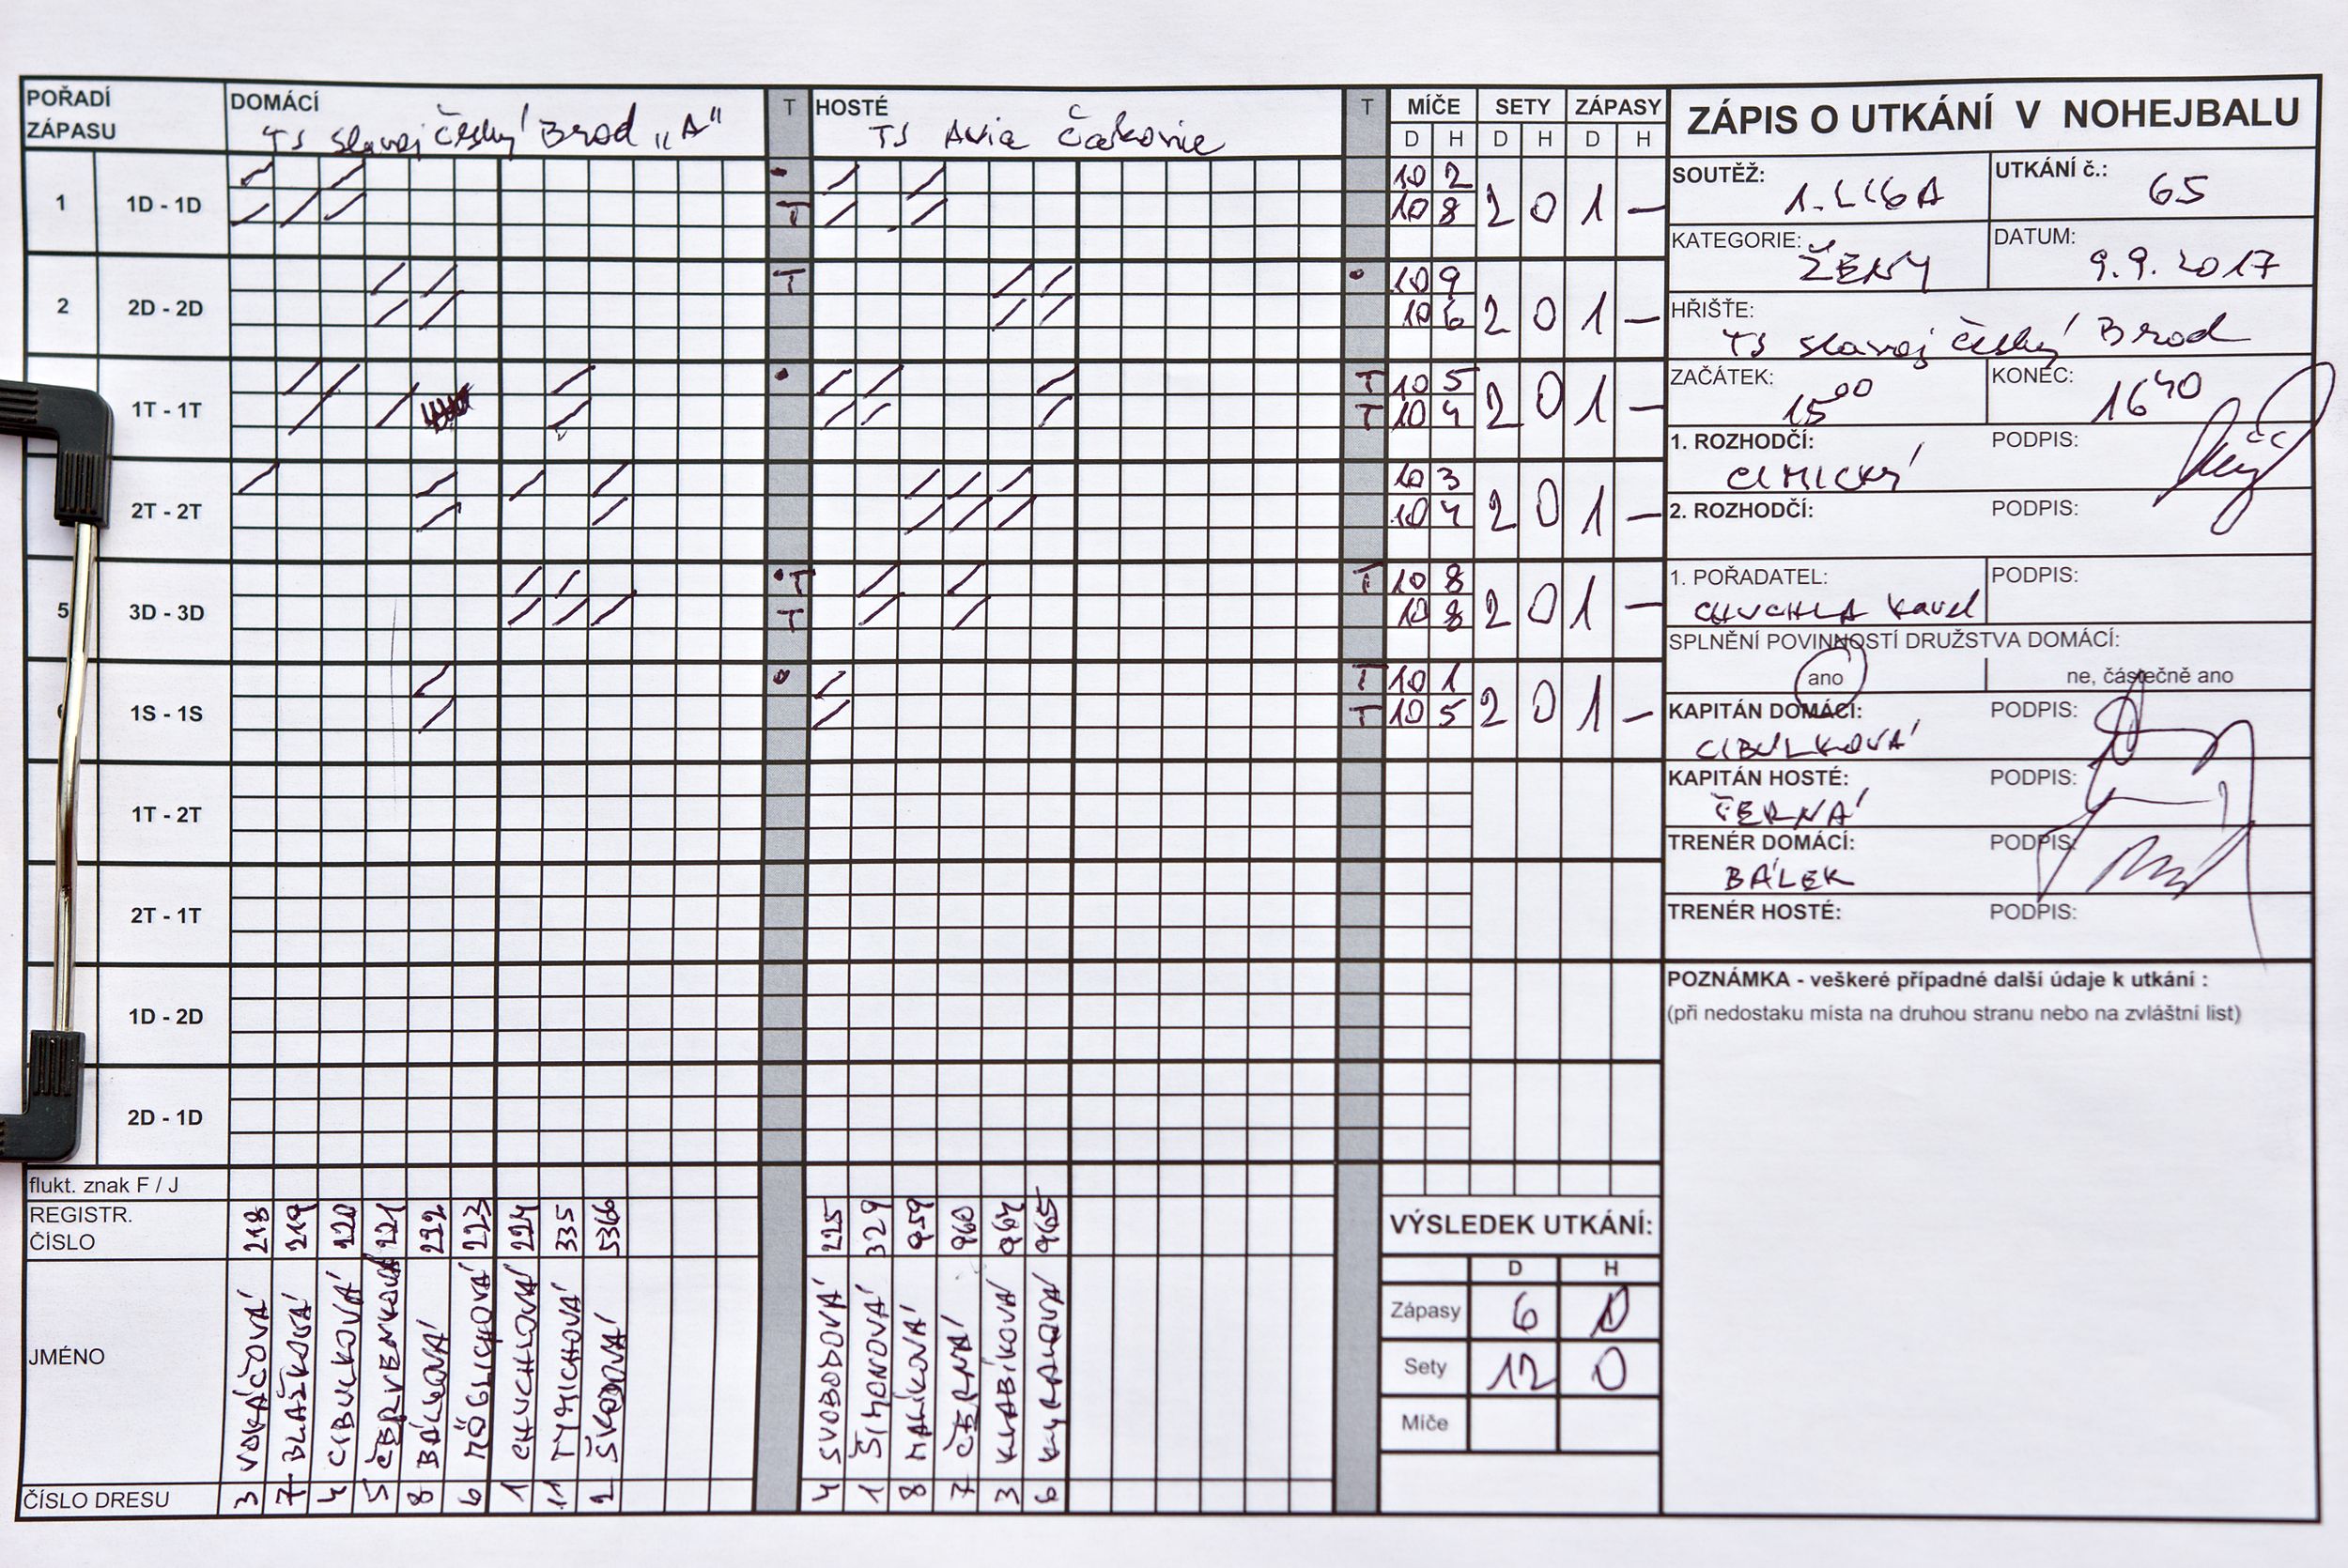 POŘADÍ ZÁPASU
DOMÁCÍ
TS Slavoj Český Brod „A"
T
HOSTÉ
TS Avia Čakovice
T
MÍČE SETY ZÁPASY
D H D H D H
1 1D - 1D T 10 2
10 8 2 0 1 –
2 2D - 2D T 10 9
10 6 2 0 1 –
1T - 1T T 10 5
T 10 4 2 0 1 –
2T - 2T 10 3
10 4 2 0 1 –
5 3D - 3D T T 10 8
T 10 8 2 0 1 –
1S - 1S T 10 1
T 10 5 2 0 1 –
1T - 2T
2T - 1T
1D - 2D
2D - 1D
flukt. znak F / J
REGISTR. ČÍSLO
218 219 220 221 222 223 224 335 5366
225 329 959 960 964 965
JMÉNO
VOKÁČOVÁ BLAŠKOVÁ CIBULKOVÁ ČERVENKOVÁ BÁLKOVÁ MÖGLICHOVÁ CHUCHLOVÁ TYMICHOVÁ ŠKODOVÁ
SVOBODOVÁ ŠIMONOVÁ MALÍKOVÁ ČERNÁ
ČÍSLO DRESU
3 7 4 5 8 6 1 11 2
4 1 8 7 3 6
VÝSLEDEK UTKÁNÍ:
D H
Zápasy 6 0
Sety 12 0
Míče
ZÁPIS O UTKÁNÍ V NOHEJBALU
SOUTĚŽ: 1. LIGA
UTKÁNÍ č.: 65
KATEGORIE: ŽENY
DATUM: 9.9.2017
HŘIŠTE:
TS Slavoj Český Brod
ZAČÁTEK: 15 00
KONEC: 16 40
1. ROZHODČÍ: PODPIS:
CIMICKÝ
2. ROZHODČÍ: PODPIS:
1. POŘADATEL: PODPIS:
CHUCHLA Karel
SPLNĚNÍ POVINNOSTÍ DRUŽSTVA DOMÁCÍ:
ano ne, částečně ano
KAPITÁN DOMÁCÍ: PODPIS:
CIBULKOVÁ
KAPITÁN HOSTÉ: PODPIS:
ČERNÁ
TRENÉR DOMÁCÍ: PODPIS:
BÁLEK
TRENÉR HOSTÉ: PODPIS:
POZNÁMKA - veškeré případné další údaje k utkání :
(při nedostaku místa na druhou stranu nebo na zvláštní list)